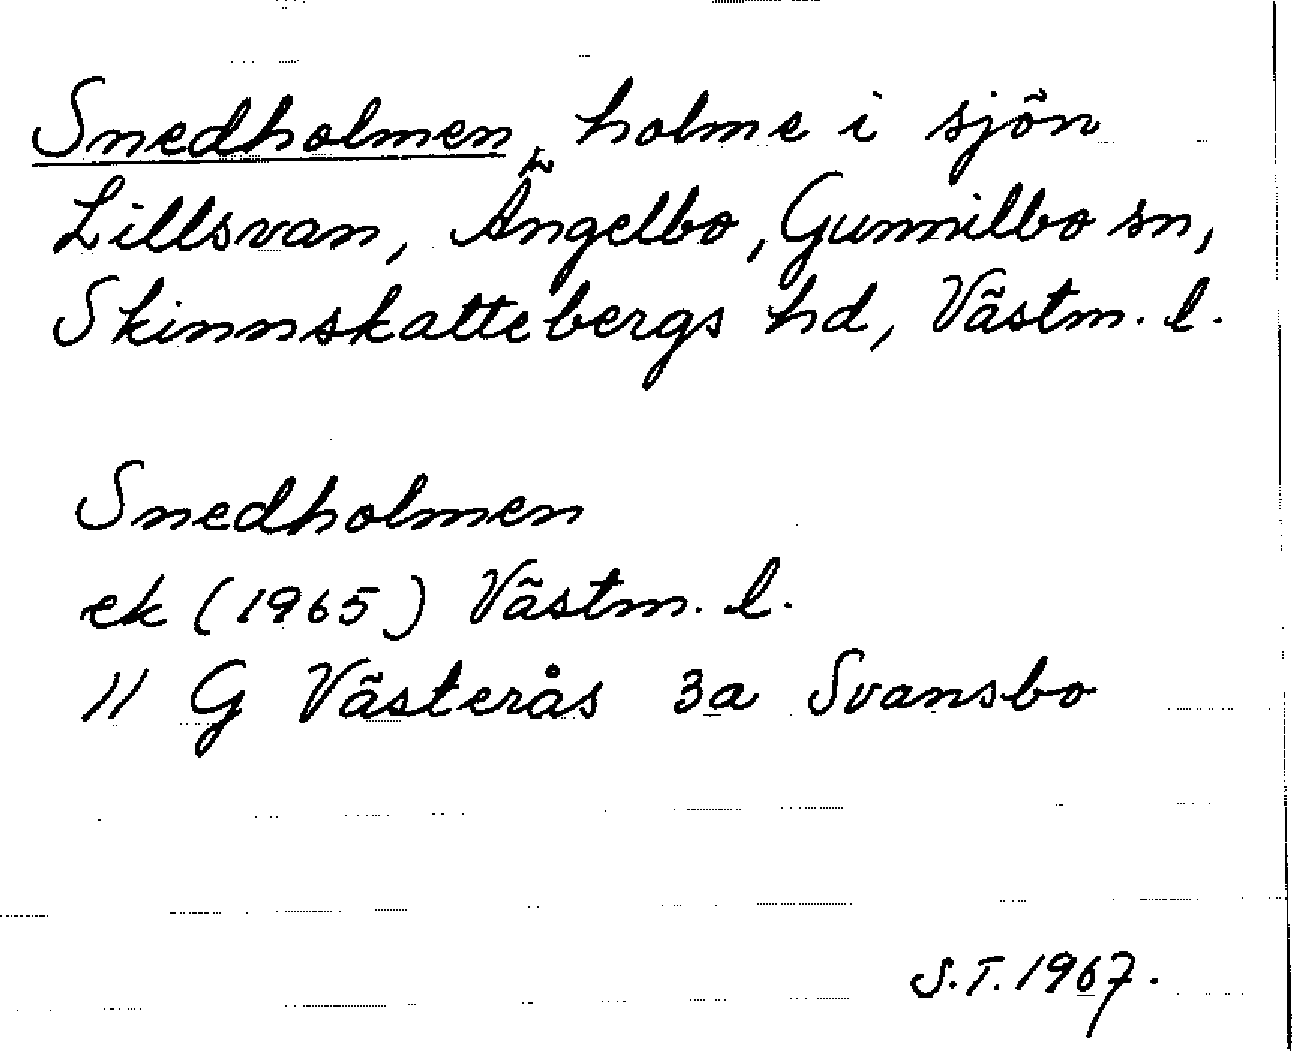 Smedholmen, holme i sjön
Lillsvan, Ängelbo, Gunnilbo sn,
Skinnskattebergs hd, Västm. l.
Smedholmen
ek (1965) Västm. l.
11 G Västerås 3a Svansbo
S.T. 1967.